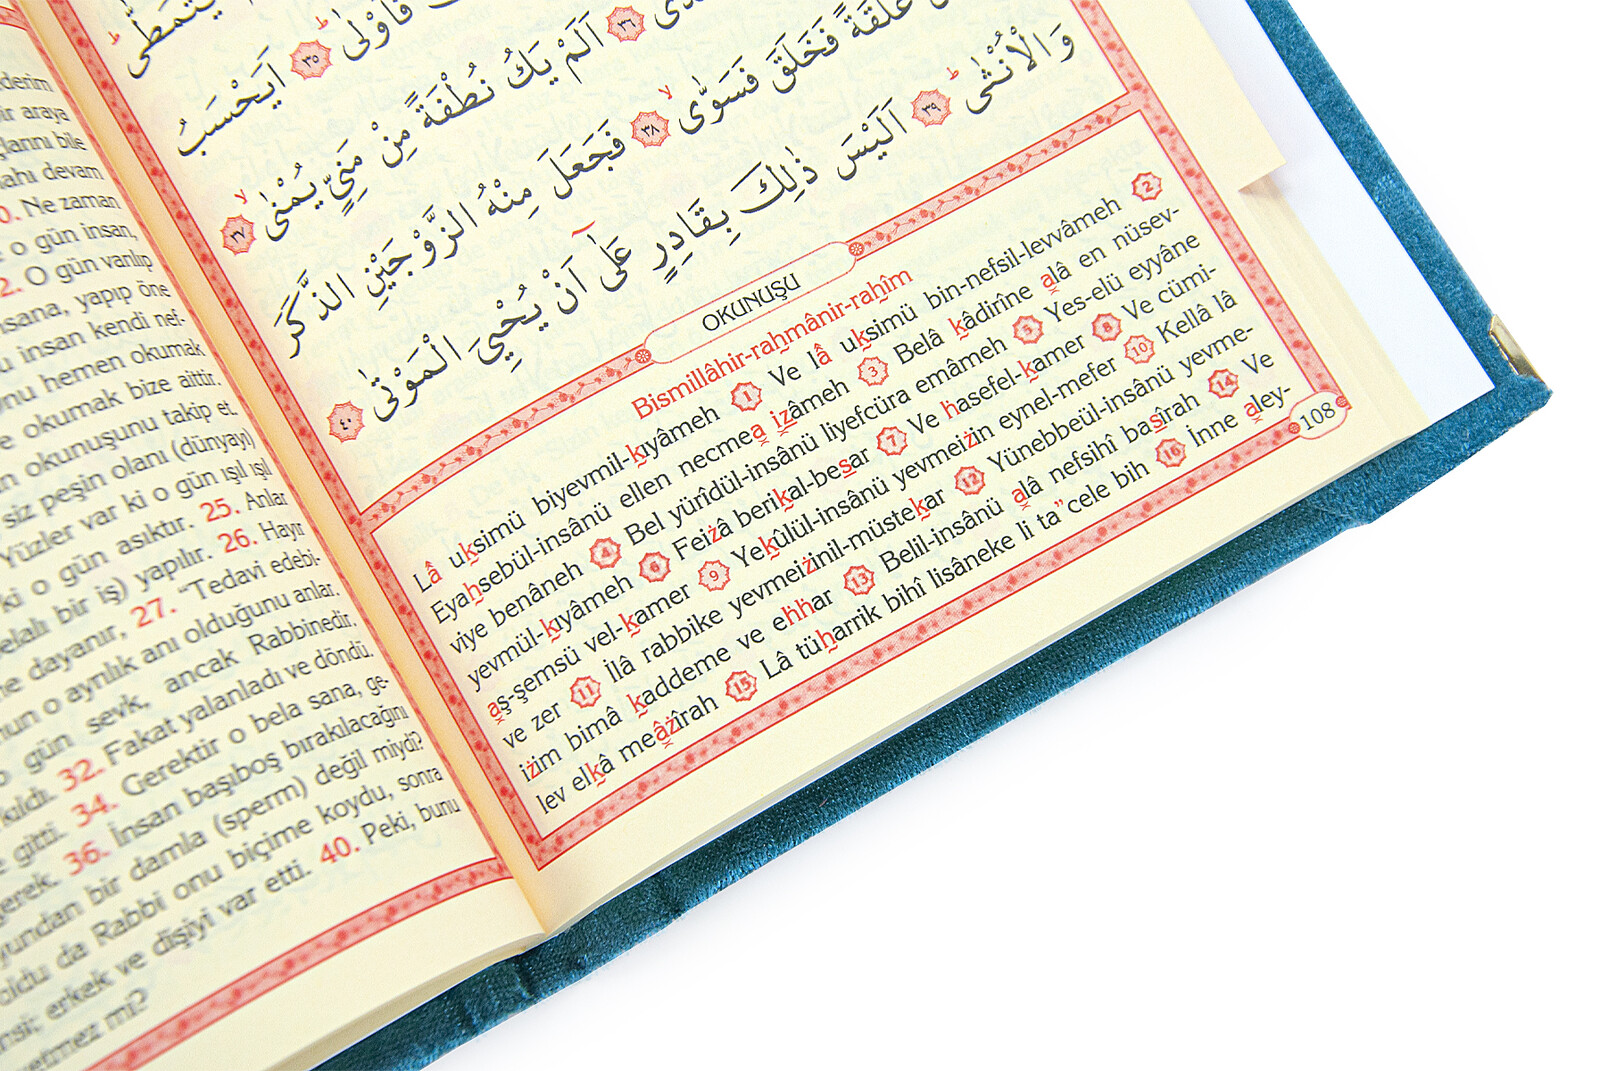 derim
bir araya
çlarını bile
dahi devam
0. Ne zaman
o gün insan,
2. O gün varılıp
insana, yapıp öne
u insan kendi nef-
onu hemen okumak
e okumak bize aittir.
n okunuşunu takip et.
siz peşin olanı (dünyayı)
Yüzler var ki o gün ışıl ışıl
ki o gün asıktır. 25. Anlar
belalı bir iş) yapılır. 26. Hayır
ne dayanır, 27. “Tedavi edebi-
nun o ayrılık anı olduğunu anlar.
o gün sevk, ancak Rabbinedir.
kıldı. 32. Fakat yalanladı ve döndü.
e gitti. 34. Gerektir o bela sana, ge-
gerek. 36. İnsan başıboş bırakılacağını
yundan bir damla (sperm) değil miydi?
oldu da Rabbi onu biçime koydu, sonra
nsi; erkek ve dişiyi var etti. 40. Peki, bunu
etmez mi?
يَتَمَطّٰى
فَاَوْلٰى ٣٥ اَيَحْسَبُ
٣٦ اَلَمْ يَكُ نُطْفَةً مِنْ مَنِيٍّ يُمْنٰى ٣٧
عَلَقَةً فَخَلَقَ فَسَوّٰى ٣٨ فَجَعَلَ مِنْهُ الزَّوْجَيْنِ الذَّكَرَ
وَالْاُنْثٰى ٣٩ اَلَيْسَ ذٰلِكَ بِقَادِرٍ عَلٰٓى اَنْ يُحْيِيَ الْمَوْتٰى ٤٠
OKUNUŞU
Bismillâhir-rahmânir-rahîm
Lâ uksimü biyevmil-kıyâmeh 1 Ve lâ uksimü bin-nefsil-levvâmeh 2
Eyahsebül-insânü ellen necmea izâmeh 3 Belâ kâdirîne alâ en nüsev-
viye benâneh 4 Bel yürîdül-insânü liyefcüra emâmeh 5 Yes-elü eyyâne
yevmül-kıyâmeh 6 Feiżâ berikal-besar 7 Ve hasefel-kamer 8 Ve cümi-
aş-şemsü vel-kamer 9 Yekûlül-insânü yevmeiżin eynel-mefer 10 Kellâ lâ
ve zer 11 İlâ rabbike yevmeiżinil-müstekar 12 Yünebbeül-insânü yevme-
iżim bimâ kaddeme ve ehhar 13 Belil-insânü alâ nefsihî basîrah 14 Ve
lev elkâ meâżîrah 15 Lâ tüharrik bihî lisâneke li ta”cele bih 16 İnne aley-
108